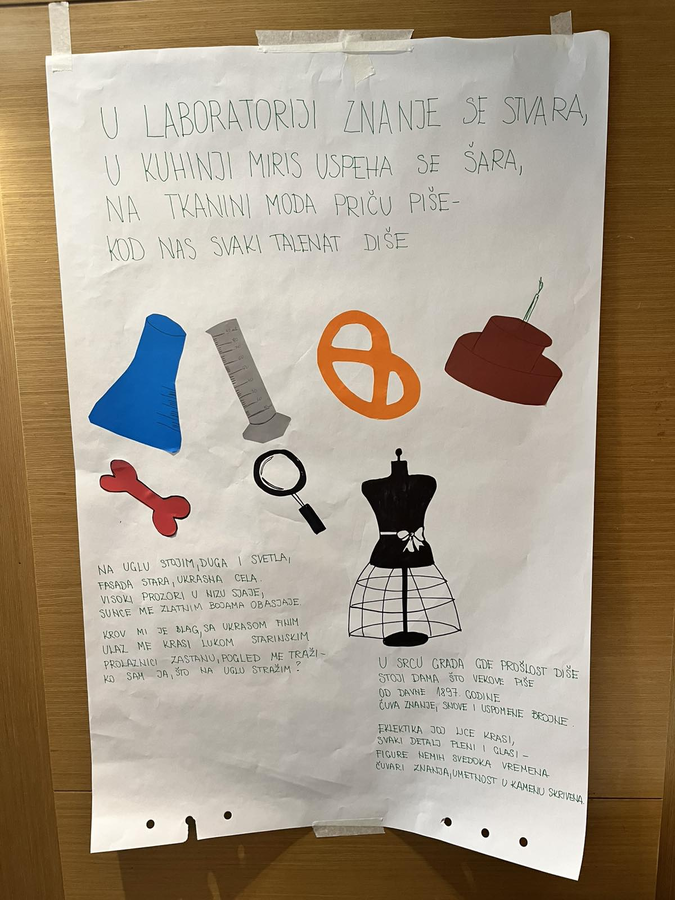 U LABORATORIJI ZNANJE SE STVARA,
U KUHINJI MIRIS USPEHA SE ŠARA,
NA TKANINI MODA PRIČU PIŠE-
KOD NAS SVAKI TALENAT DIŠE
NA UGLU STOJIM, DUGA I SVETLA,
FASADA STARA, UKRASNA CELA.
VISOKI PROZORI U NIZU SJAJE,
SUNCE ME ZLATNIM BOJAMA OBASJAJE
KROV MI JE BLAG, SA UKRASOM FINIM
ULAZ ME KRASI LUKOM STARINSKIM
PROLAZNICI ZASTANU, POGLED ME TRAŽI-
KO SAM JA, ŠTO NA UGLU STRAŽIM?
U SRCU GRADA GDE PROŠLOST DIŠE
STOJI DAMA ŠTO VEKOVE PIŠE
OD DAVNE 1897 GODINE
ČUVA ZNANJE, SNOVE I USPOMENE BROJNE.
EKLEKTIKA JOJ LICE KRASI,
SVAKI DETALJ PLENI I GLASI-
FIGURE NEMIH SVEDOKA VREMENA
ČUVARI ZNANJA, UMETNOST U KAMENU SKRIVENA.